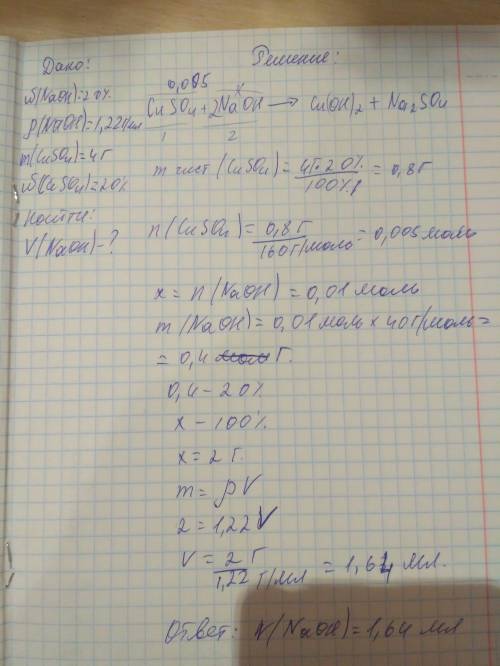 Дано:
ω(NaOH)=20%
ρ(NaOH)=1,22г/мл
m(CuSO₄)=4г
ω(CuSO₄)=20%
Найти:
V(NaOH)-?
Решение:
0,005 x
CuSO₄+2NaOH → Cu(OH)₂ + Na₂SO₄
1 2
m чист (CuSO₄) = 4г·20% / 100% = 0,8г
n(CuSO₄) = 0,8г / 160г/моль = 0,005моль
x = n(NaOH) = 0,01моль
m(NaOH) = 0,01моль × 40г/моль =
= 0,4 г.
0,4 – 20%
x – 100%
x = 2г.
m = ρV
2 = 1,22V
V = 2г / 1,22г/мл = 1,64 мл.
Ответ: V(NaOH)=1,64 мл